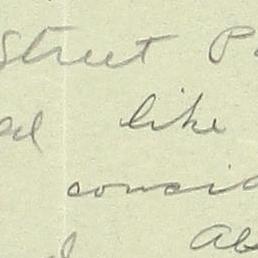 Street P
ed like
conside
Ab